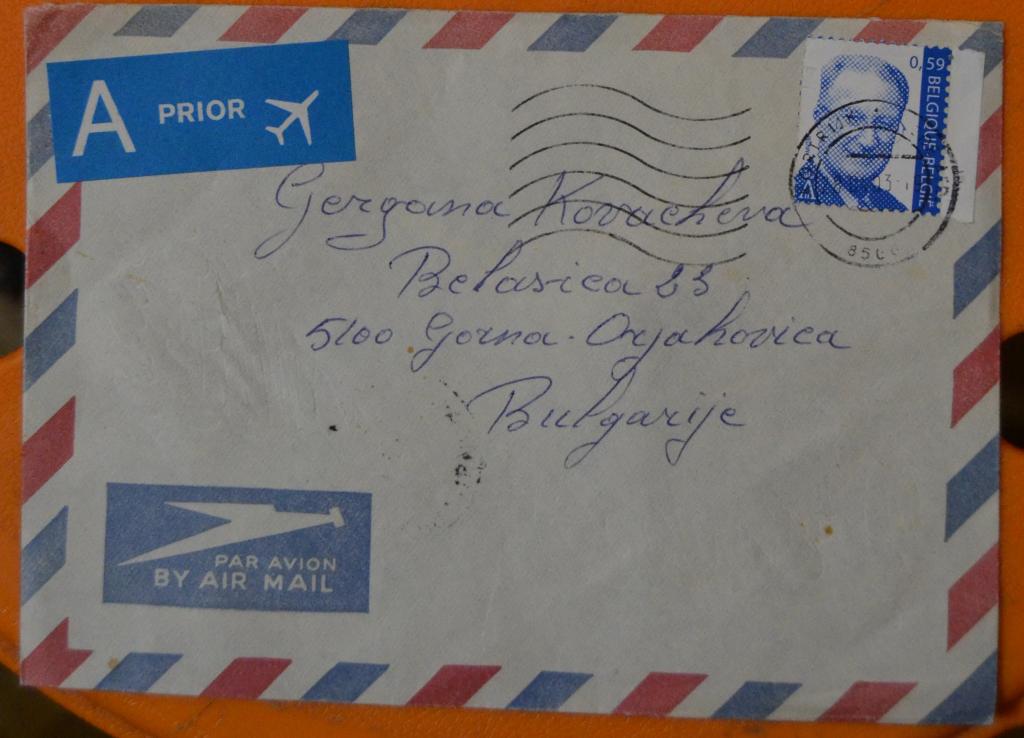 A PRIOR
0,59
BELGIQUE-BELGIË
8500
Gergana Kovacheva
Belasica 23
5100 Gorna-Orjahovica
Bulgarije
PAR AVION
BY AIR MAIL